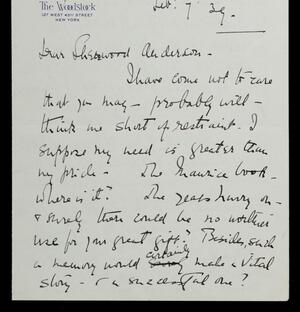 The Woodstock
127 WEST 43rd STREET
NEW YORK
Feb. 7 '29.
Dear Sherwood Anderson -
I have come not to care
that you may - probably will -
think me short of restraint. I
suppose my need is greater than
my pride - The Maurice book -
where is it? The years hurry on -
& surely there could be no worthier
use for your great gift? Besides, such
a memory would certainly make a vital
story - & a successful one?